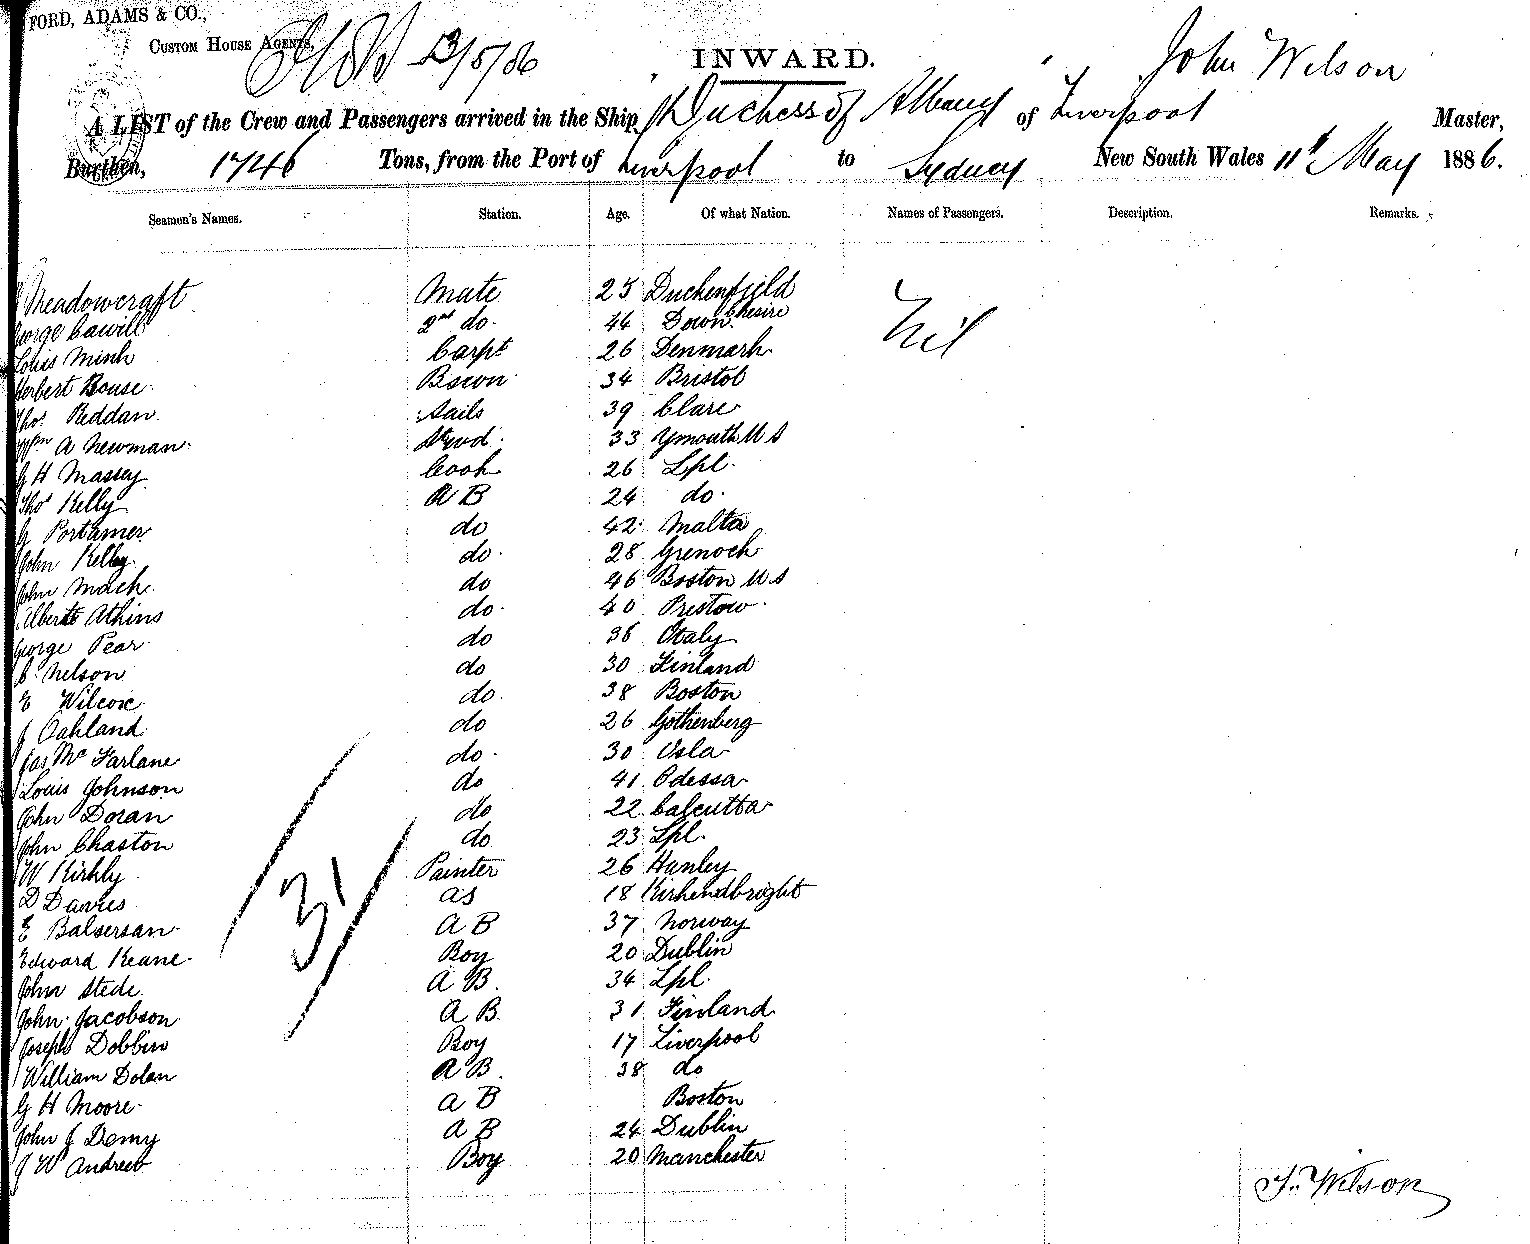 FORD, ADAMS & CO.,
CUSTOM HOUSE AGENTS,
13/5/86
INWARD.
John Wilson
A LIST of the Crew and Passengers arrived in the Ship Duchess of Albany of Liverpool Master,
Burthen, 1746 Tons, from the Port of Liverpool to Sydney New South Wales 11th May 1886.
Seamen's Names. Station. Age. Of what Nation. Names of Passengers. Description. Remarks.
Meadowcraft Mate 25 Duckenfield
Chesire
George Cawill 2nd do. 44 Down Nil
Louis Minh Carpt 26 Denmark
Herbert Bouse Bswn 34 Bristol
Thos. Reddan Sails 39 Clare
Wm A Newman Stwd. 33 Ymouth U S
G H Massey Cook 26 Lpl.
Thos Kelly A B 24 do.
G Portamer do 42 Malta
John Kelly do. 28 Grenock
John Mack do 46 Boston U S
Albert Atkins do. 40 Prestow
George Pear do 36 Italy
C. Nelson do 30 Finland
E Wilcox do. 38 Boston
J Oahland do 26 Gothenberg
Jas Mc Farlane do. 30 Usla
Louis Johnson do 41 Odessa
John Doran do 22 Calcutta
John Chaston do 23 Lpl.
W Kirkly Painter 26 Hanley
D Davies as 18 Kirkendbright
E Balsersan A B 37 Norway
31
Edward Keane Boy 20 Dublin
John Stede A B. 34 Lpl.
John Jacobson A B 31 Finland
Joseph Dobbin Boy 17 Liverpool
William Dolan A B. 38 do
G H Moore A B Boston
John J Demy A B 24 Dublin
J W Andrew Boy 20 Manchester
J. Wilson